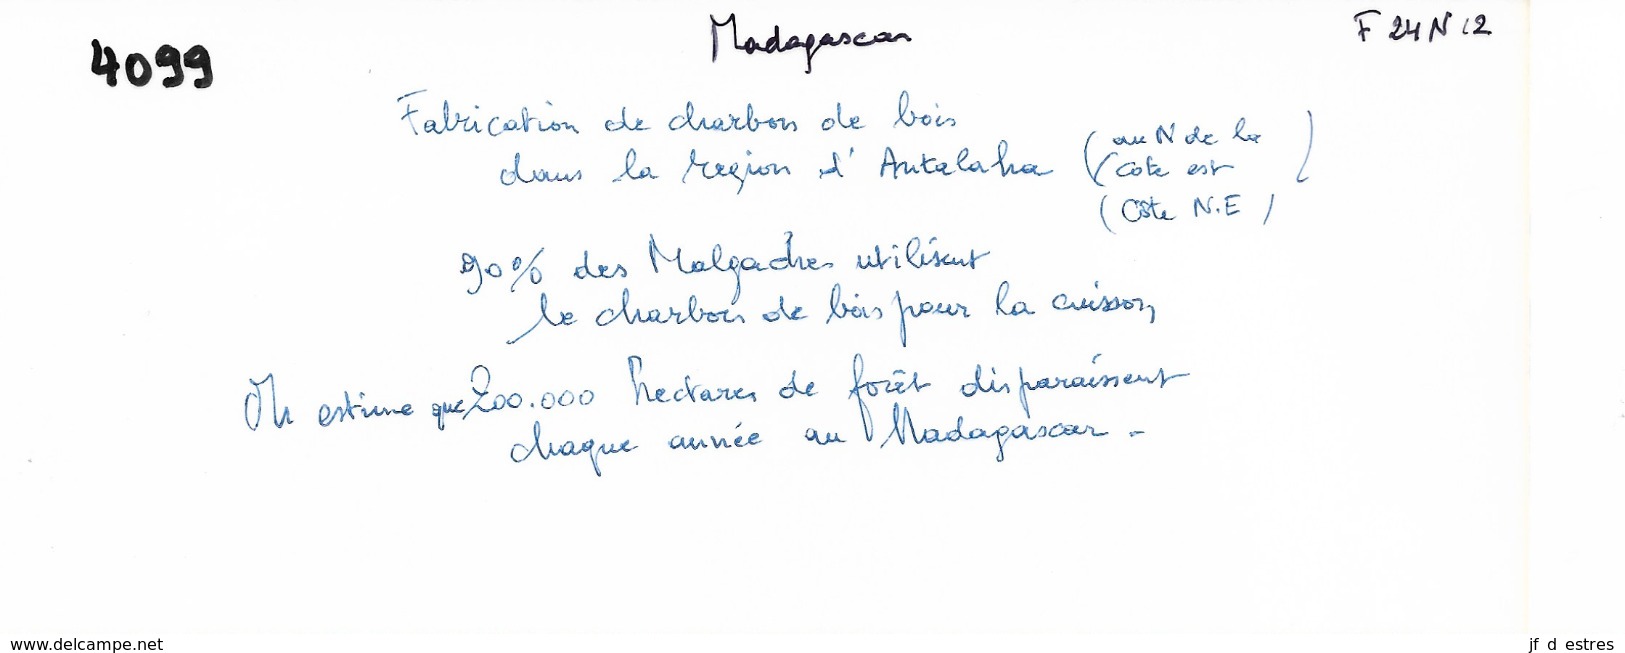 Madagascar
F 24 N 12
4099
Fabrication de charbon de bois
dans la region d'Antalaha (au N de la
(côte est)
(Côte N.E)
90% des Malgaches utilisent
le charbon de bois pour la cuisson,
On estime que 200.000 hectares de forêt disparaissent
chaque année au Madagascar -
www.delcampe.net
jf d estres